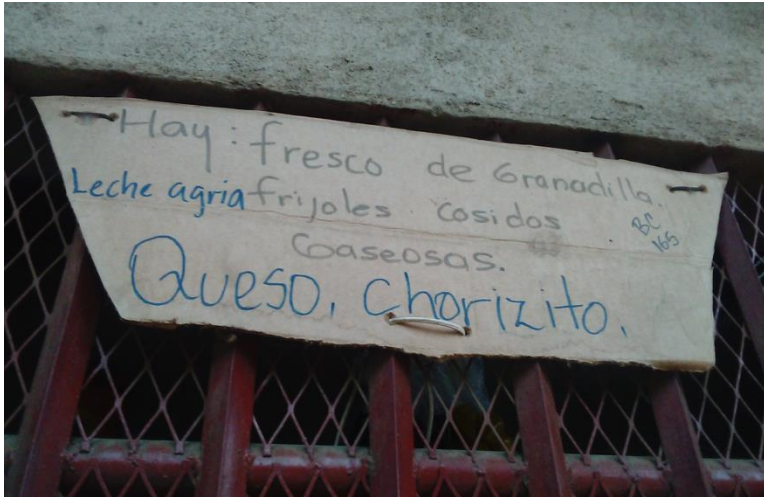 Hay: fresco de Granadilla.
Leche agria frijoles cosidos
BC
165
Gaseosas.
Queso, Chorizito.